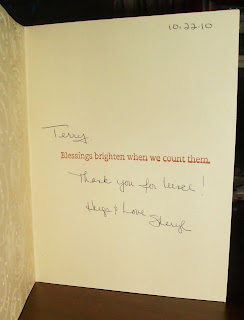 10.22.10
Terry,
Blessings brighten when we count them.
Thank you for Merci!
Hugs & Love Sheryl